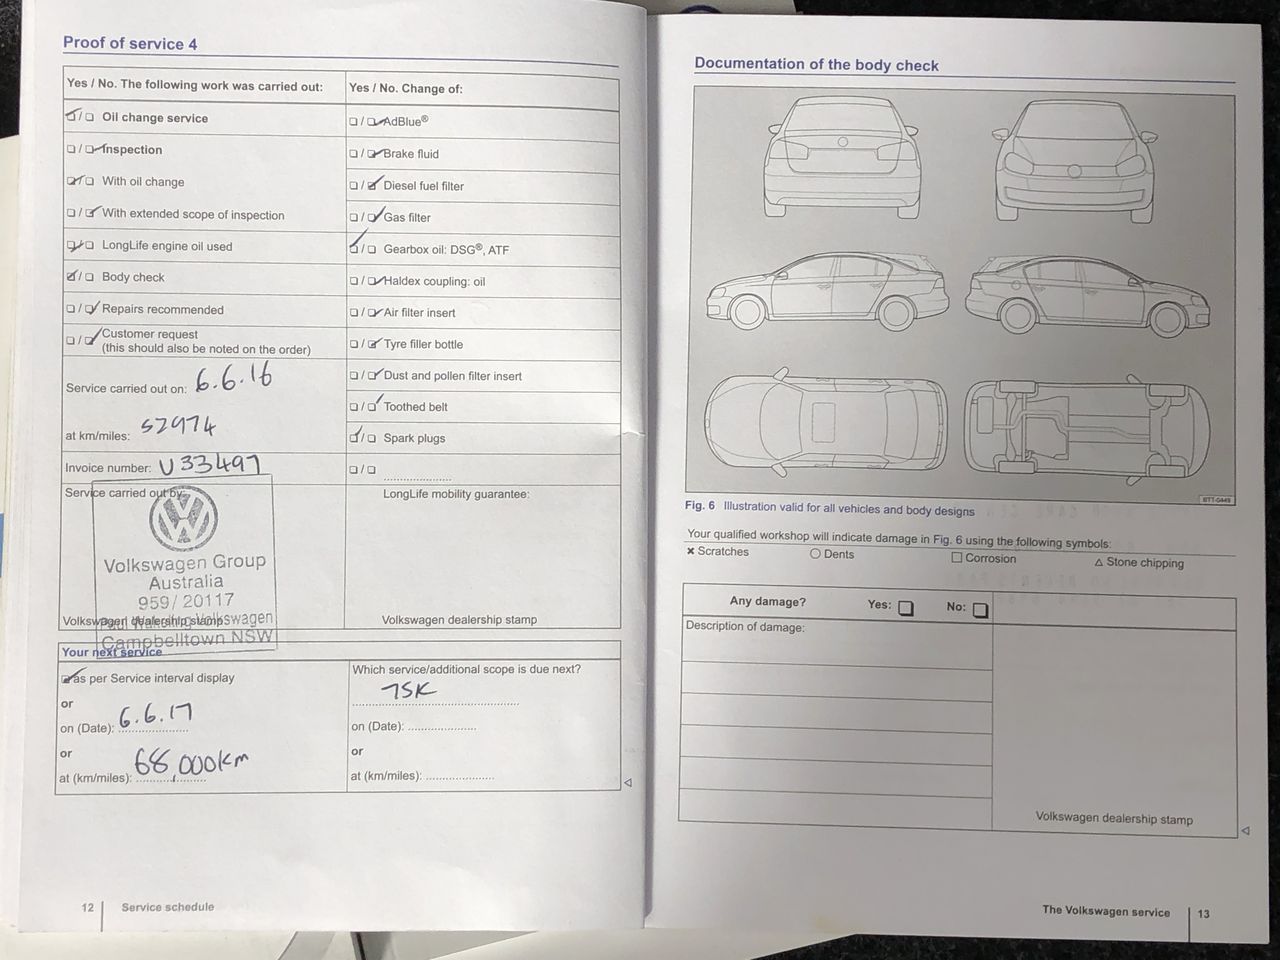 Proof of service 4
Yes / No. The following work was carried out:
Oil change service
Inspection
With oil change
With extended scope of inspection
LongLife engine oil used
Body check
Repairs recommended
Customer request
(this should also be noted on the order)
Service carried out on: 6.6.16
at km/miles: 52974
Invoice number: U33497
Service carried out by:
Volkswagen Group
Australia
959/20117
Volkswagen dealership stamp
Volkswagen
Campbelltown NSW
Yes / No. Change of:
AdBlue®
Brake fluid
Diesel fuel filter
Gas filter
Gearbox oil: DSG®, ATF
Haldex coupling: oil
Air filter insert
Tyre filler bottle
Dust and pollen filter insert
Toothed belt
Spark plugs
LongLife mobility guarantee:
Volkswagen dealership stamp
Your next service
as per Service interval display
or
on (Date): 6.6.17
or
at (km/miles): 68,000km
Which service/additional scope is due next?
75K
on (Date):
or
at (km/miles):
12 Service schedule
Documentation of the body check
Fig. 6 Illustration valid for all vehicles and body designs
Your qualified workshop will indicate damage in Fig. 6 using the following symbols:
× Scratches ○ Dents □ Corrosion △ Stone chipping
Any damage? Yes: No:
Description of damage:
Volkswagen dealership stamp
The Volkswagen service 13